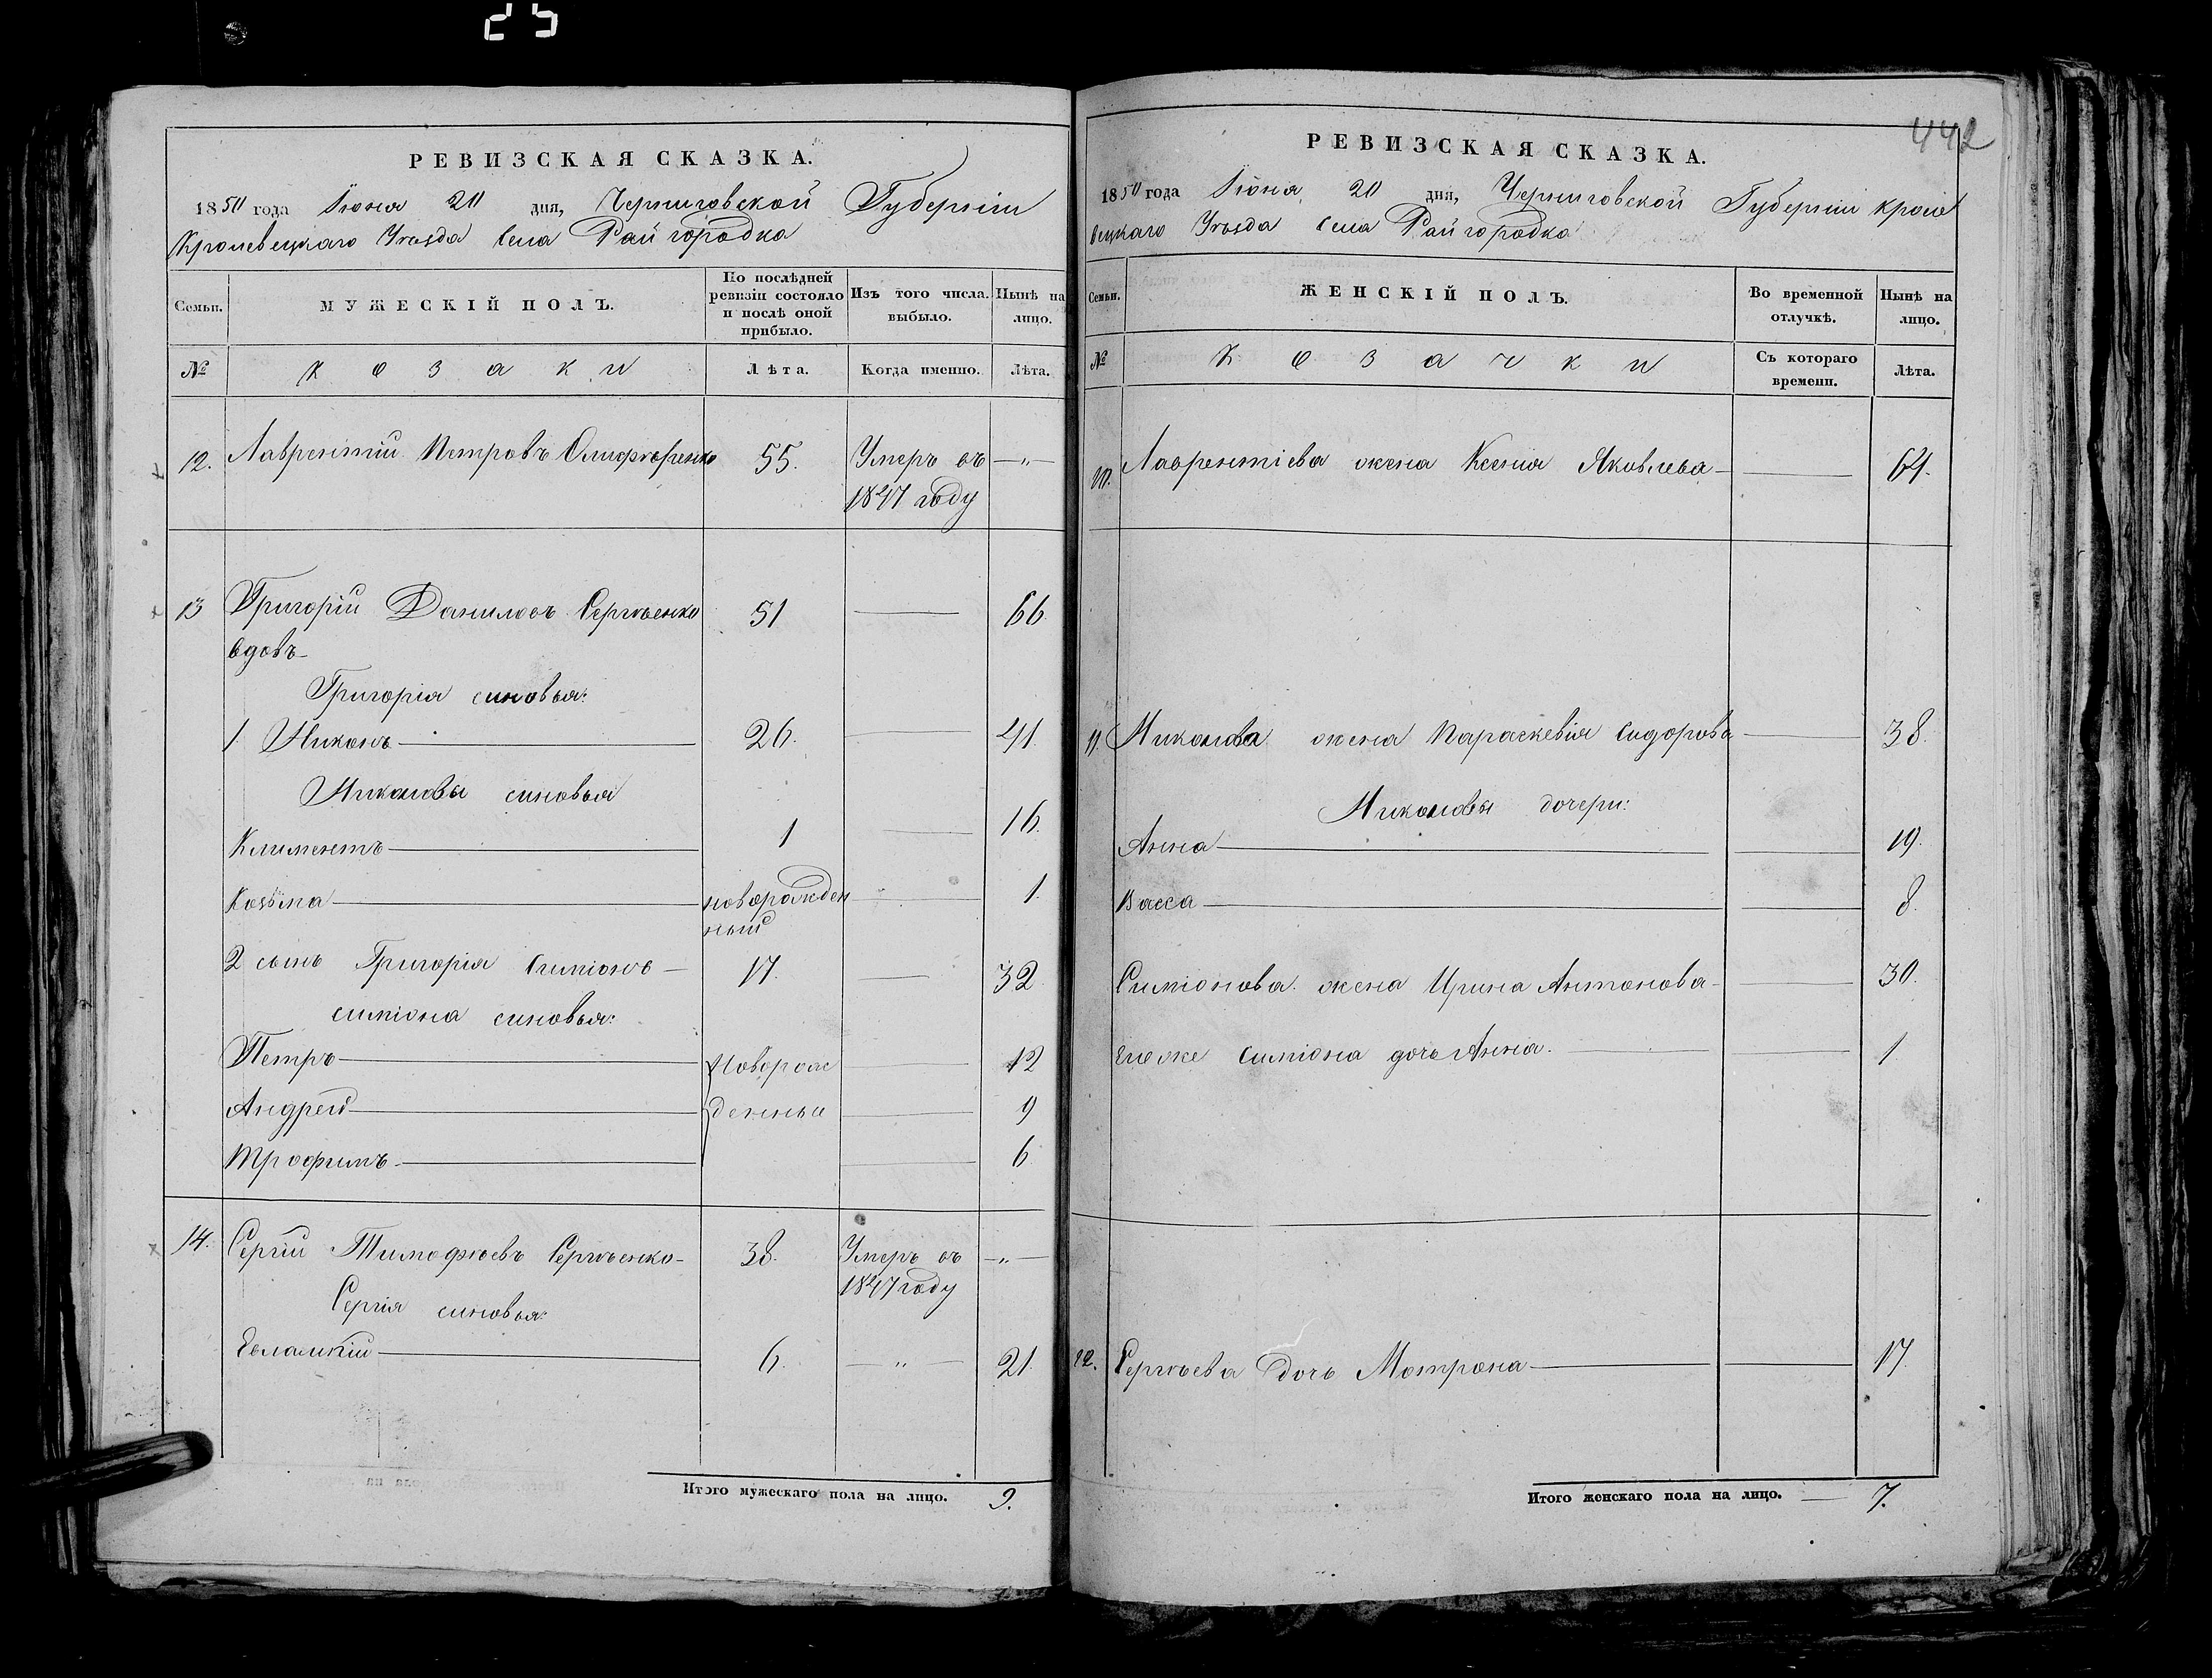 25
РЕВИЗСКАЯ СКАЗКА.
1850 года Іюня 20 дня, Черниговской Губерніи
Кролевецкаго Уѣзда Села Райгородка
Семьи. МУЖЕСКІЙ ПОЛЪ. По послѣдней ревизіи состояло и послѣ оной прибыло. Изъ того числа выбыло. Нынѣ на лицо.
№ Козаки Лѣта. Когда именно. Лѣта.
12. Лаврентій Петровъ Олифѣренко 55. Умеръ въ —„—
1847 году
13 Григорій Даниловъ Сергѣенко 51 — 66
вдовъ
Григорія синовья:
1 Никонъ — 26. — 41.
Никоновы синовья
Климентъ — 1 — 16.
Козьма — новорожден — 1.
ный
2 сынъ Григорія Симіонъ — 17. — 32
симіона синовья:
Петръ — Новорож — 12
Андрей — денные — 9
Трофимъ — — 6
14. Сергій Тимофѣевъ Сергѣенко — 38. Умеръ въ —„—
1847 году
Сергія синовья:
Евлампій — 6. —„— 21.
Итого мужескаго пола на лицо. 9.
442
РЕВИЗСКАЯ СКАЗКА.
1850 года Іюня 20 дня, Черниговской Губерніи Кроле
вецкаго Уѣзда Села Райгородка
Семьи. ЖЕНСКІЙ ПОЛЪ. Во временной отлучкѣ. Нынѣ на лицо.
№ Козачки Съ котораго времени. Лѣта.
10. Лаврентіева жена Ксенія Яковлева — — 64.
11. Никонова жена Параскевія Сидорова — 38.
Никоновы дочери:
Анна — — 19.
Васса — — 8.
Симіонова жена Ирина Антонова — — 30.
Егоже Симіона дочь Анна. — — 1.
12. Сергѣева дочь Мотрона — — 17.
Итого женскаго пола на лицо. — 7.